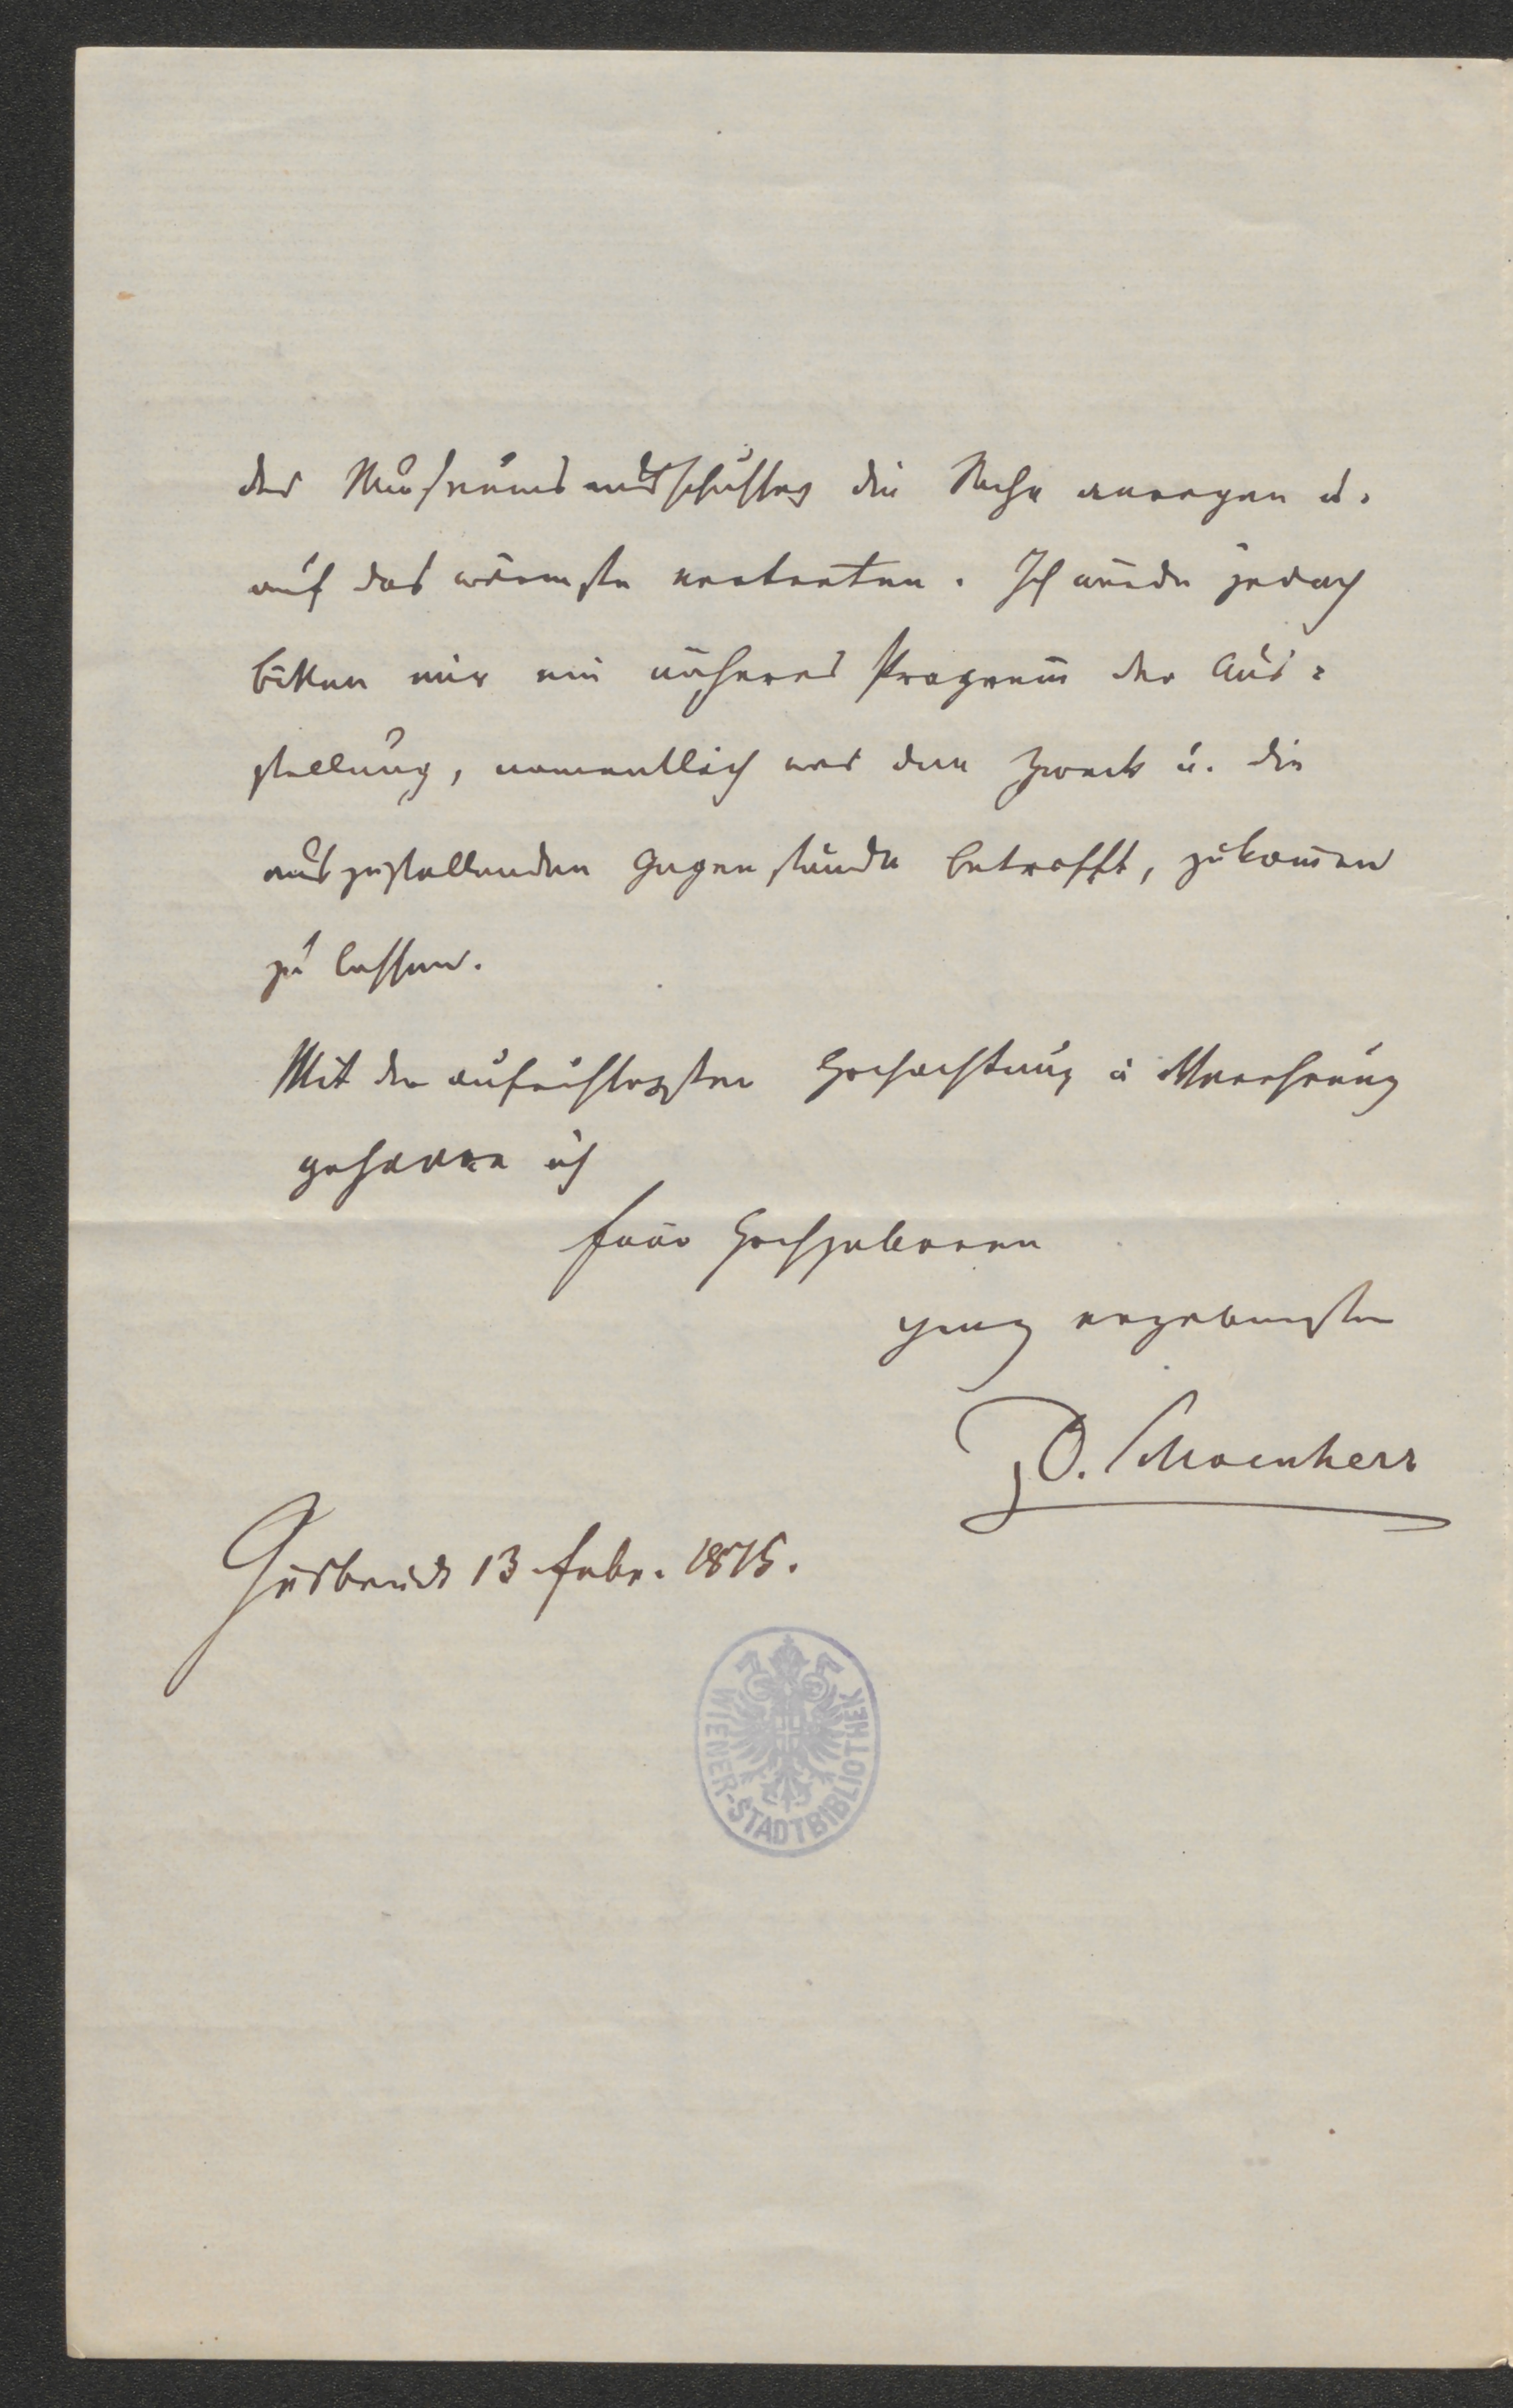 des Museumsausschusses die Sache anregen u.
auf das wärmste vertreten. Ich würde jedoch
bitten mir ein näheres Programm der Aus=
stellung, namentlich was den Zweck u. die
auszustellenden Gegenstände betrifft, zukommen
zu lassen.
Mit der aufrichtigsten Hochachtung u Verehrung
geharre ich
Euer Hochgeboren
ganz ergebenster
D. Schoenherr
Insbruck 13. Febr. 1875.
WIENER-STADTBIBLIOTHEK